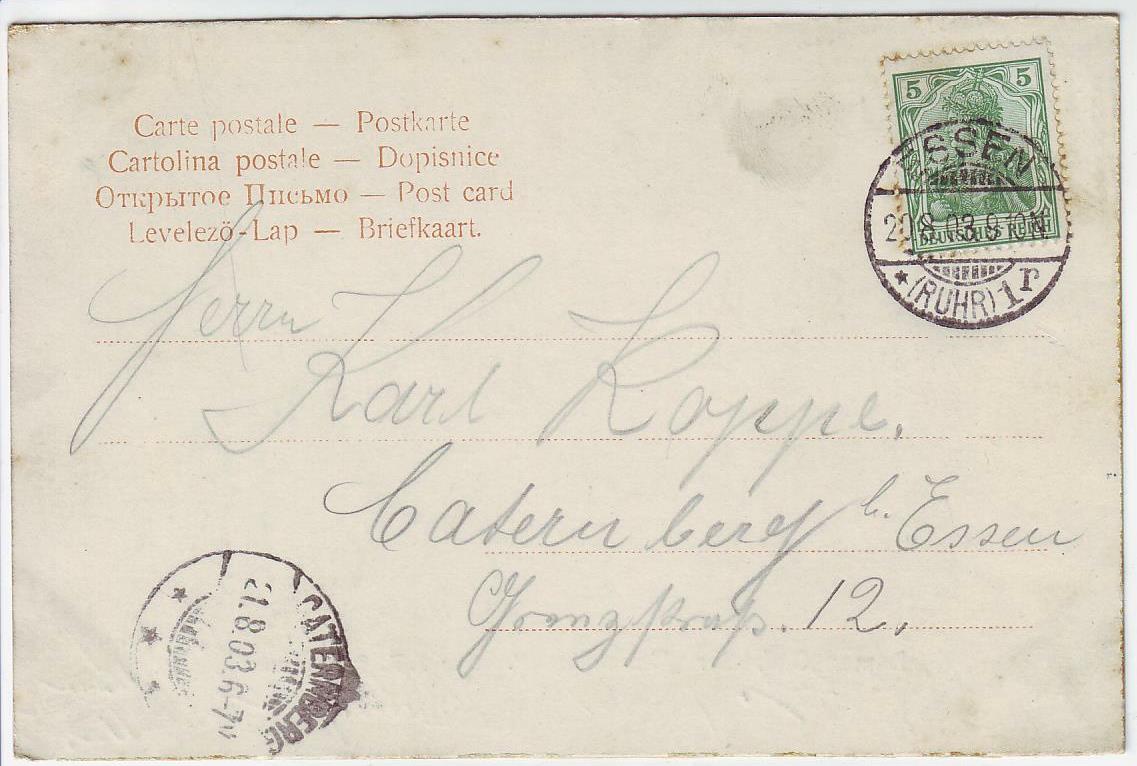 Carte postale — Postkarte
Cartolina postale — Dopisnice
Открытое Письмо — Post card
Levelezö-Lap — Briefkaart.
5 5
DEUTSCHES REICH
ESSEN
20.8.03.9-10N
* (RUHR) 1r
Herrn
Karl Koppe,
Caternberg b. Essen
Grenzstraß. 12.
CATERNBERG
21.8.03.6-7V